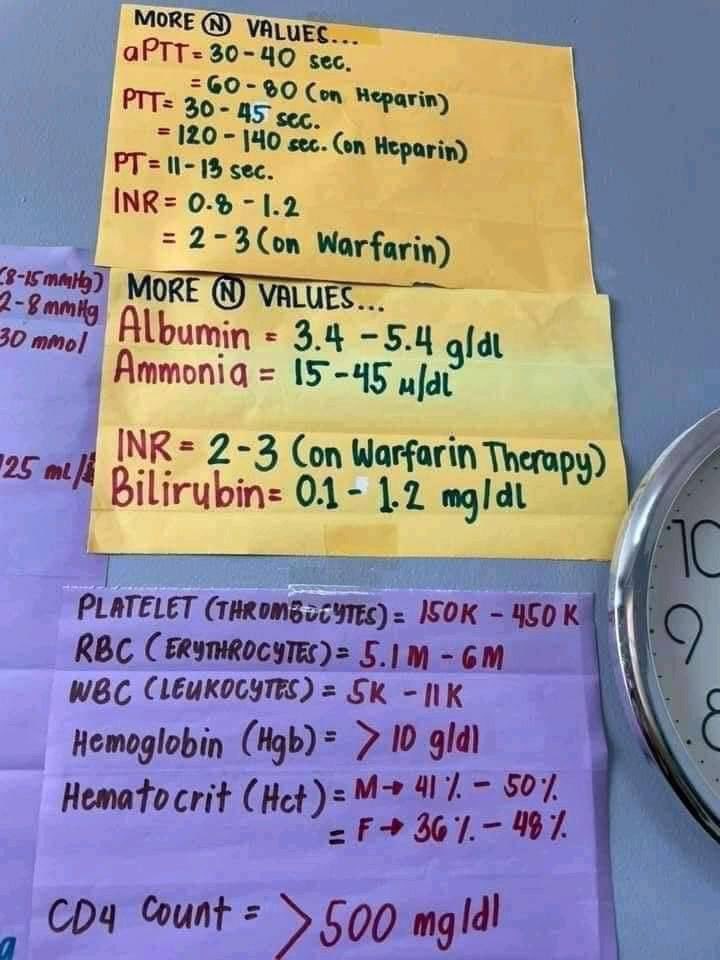 MORE Ⓝ VALUES...
aPTT = 30-40 sec.
= 60-80 (on Heparin)
PTT = 30-45 sec.
= 120-140 sec. (on Heparin)
PT = 11-13 sec.
INR = 0.8 - 1.2
= 2-3 (on Warfarin)
(8-15 mmHg)
2-8 mmHg
30 mmol
125 mL/
MORE Ⓝ VALUES...
Albumin = 3.4 - 5.4 g/dl
Ammonia = 15-45 μ/dl
INR = 2-3 (on Warfarin Therapy)
Bilirubin = 0.1 - 1.2 mg/dl
PLATELET (THROMBOCYTES) = 150K - 450K
RBC (ERYTHROCYTES) = 5.1M - 6M
WBC (LEUKOCYTES) = 5K - 11K
Hemoglobin (Hgb) = > 10 g/dl
Hematocrit (Hct) = M→ 41% - 50%
= F→ 36% - 48%
CD4 Count = >500 mg/dl
10
9
8